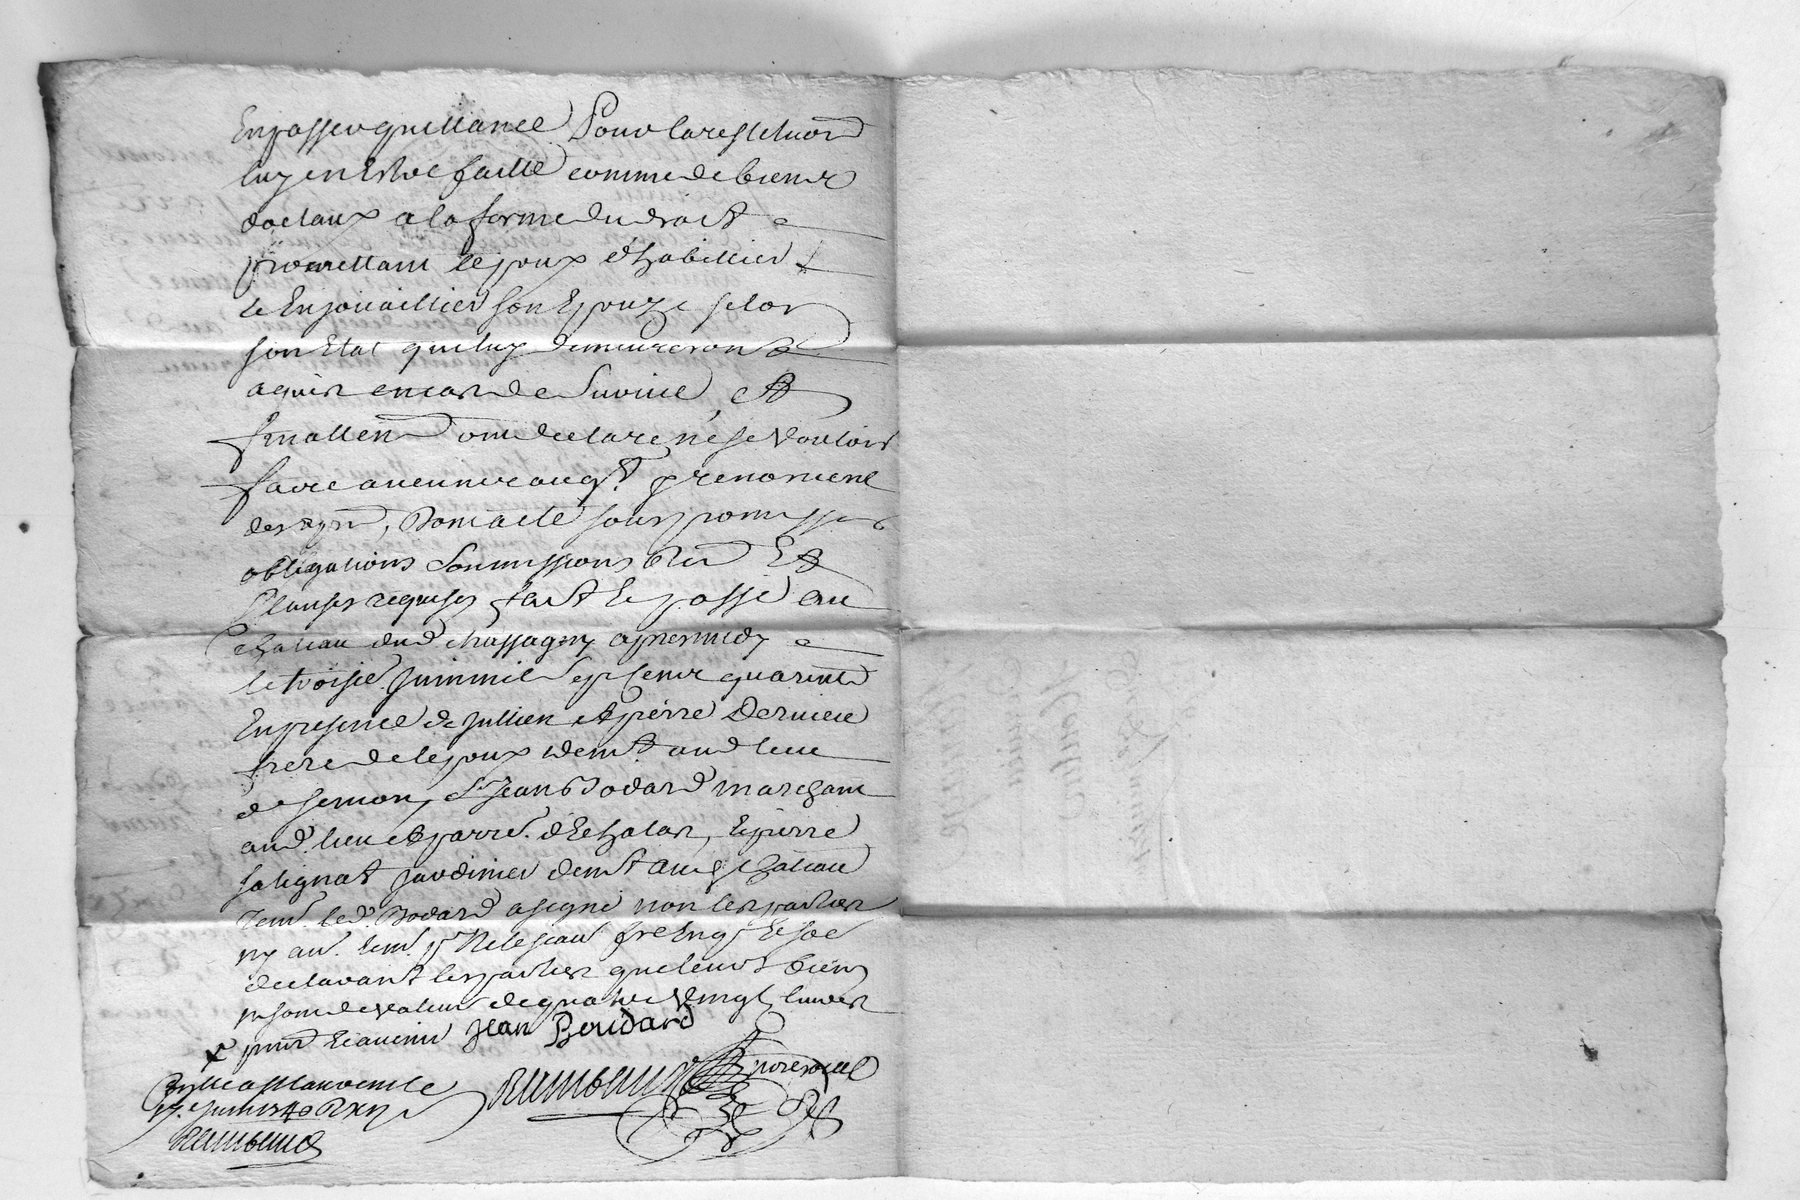 En passer quittance Pour la restituon
luy en Estre faitte comme de biens
dotaux a la forme du droict
promettant le poux d'habillier
et Enjouaillier son Epouze selon
son Etat que luy demeureront
acquis en cas de Survice, et
finallent ont declaré ne se vouloir
faire aucune augt. prenomené
des ptn, Dont acte sous promesses
obligations Soumissions Ren Et
Clauses requises fait Et passé au
chateau dud Chassagny apres midy
le troisie. Juin mil Sept Cent quarente
En presence de Jullien et pierre Dervieu
frere de lepoux demt. aud lieu
de Semon, Sr Jean Bodard marchant
aud. lieu et parre. d'Echalas, Et pierre
Salignat jardinier demt au d chateau
Tem. led. Bodard a signé non les parties
ny au. tem. pr Ne le scavoir fre Enqs Et soe
declarant les parties que leurs biens
sont de valeur de quatre vingt livres
pnt Et avenir Jean Boudard
Rambaud
Controllé a St Laurent le
Juin 1740
Rambaud